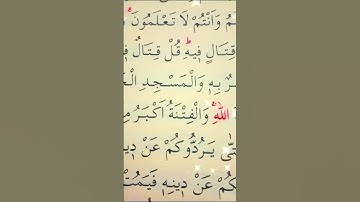 مُ وَاَنْتُمْ لَا تَعْلَمُونَ
قِتَالٍ ف۪يهِۜ قُلْ قِتَالٌ
رٌ بِه۪ وَالْمَسْجِدِ الْحَ
اللّٰهِۚ وَالْفِتْنَةُ اَكْبَرُ مِ
تّٰى يَرُدُّوكُمْ عَنْ د۪ي
كُمْ عَنْ د۪ينِه۪ فَيَمُتْ